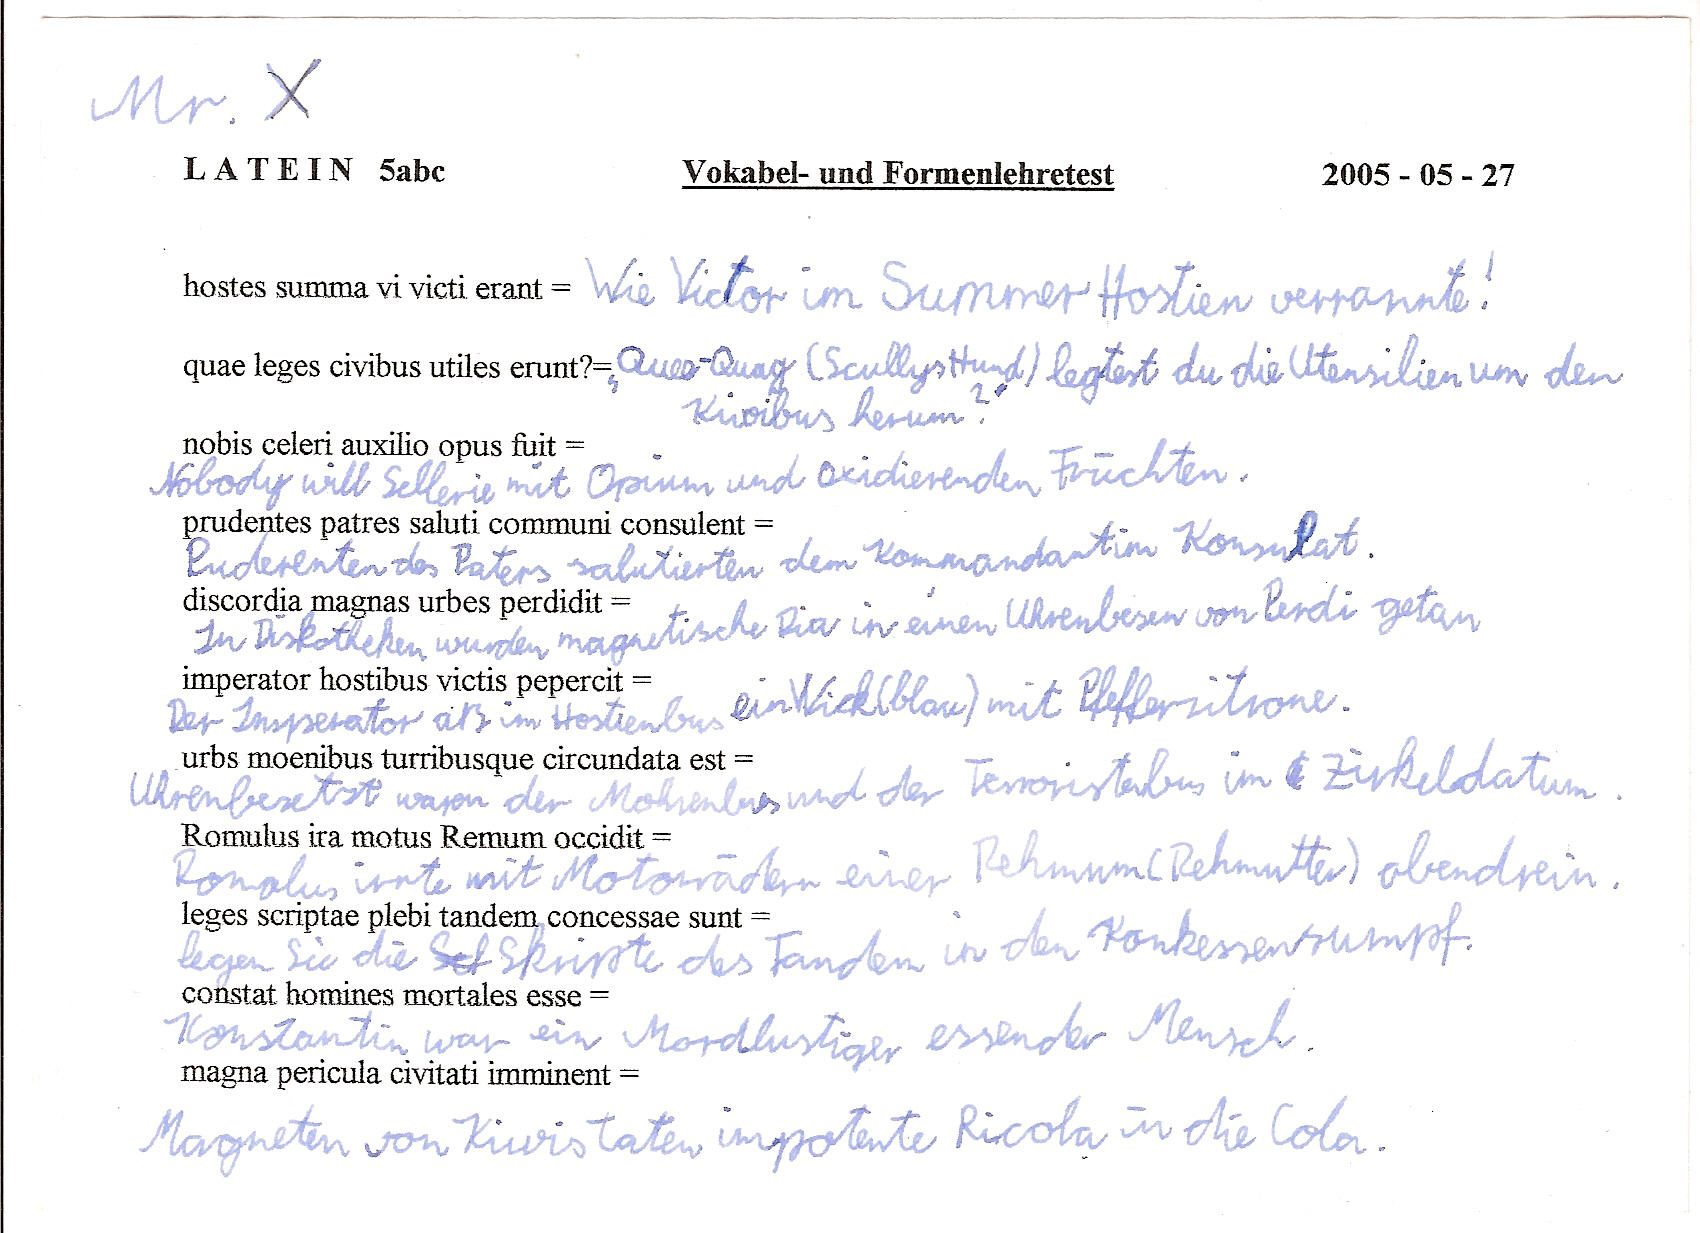 Mr. X
LATEIN 5abc Vokabel- und Formenlehretest 2005 - 05 - 27
hostes summa vi victi erant = Wie Victor im Summer Hostien verrannte!
quae leges civibus utiles erunt?= Queo-Quag (Scullys Hund) legtest du die Utensilien um den
Kiwibus herum?
nobis celeri auxilio opus fuit =
Nobody will Sellerie mit Opium und oxidierenden Früchten.
prudentes patres saluti communi consulent =
Puderenten des Paters salutierten dem Kommandant im Konsulat.
discordia magnas urbes perdidit =
In Diskotheken wurden magnetische Dia in einen Uhrenbesen von Perdi getan
imperator hostibus victis pepercit =
Der Insperator aß im Hostienbus ein Wick (blau) mit Pfefferzitrone.
urbs moenibus turribusque circundata est =
Uhrenbesetzt waren der Mohrenbus und der Terroristenbus im Zirkeldatum.
Romulus ira motus Remum occidit =
Romulus irrte mit Motorrädern einer Rehmum (Rehmutter) obendrein.
leges scriptae plebi tandem concessae sunt =
legen Sie die Skripte des Tandem in den Konkessensumpf.
constat homines mortales esse =
Konstantin war ein Mordlustiger essender Mensch.
magna pericula civitati imminent =
Magneten von Kiwis taten impotente Ricola in die Cola.